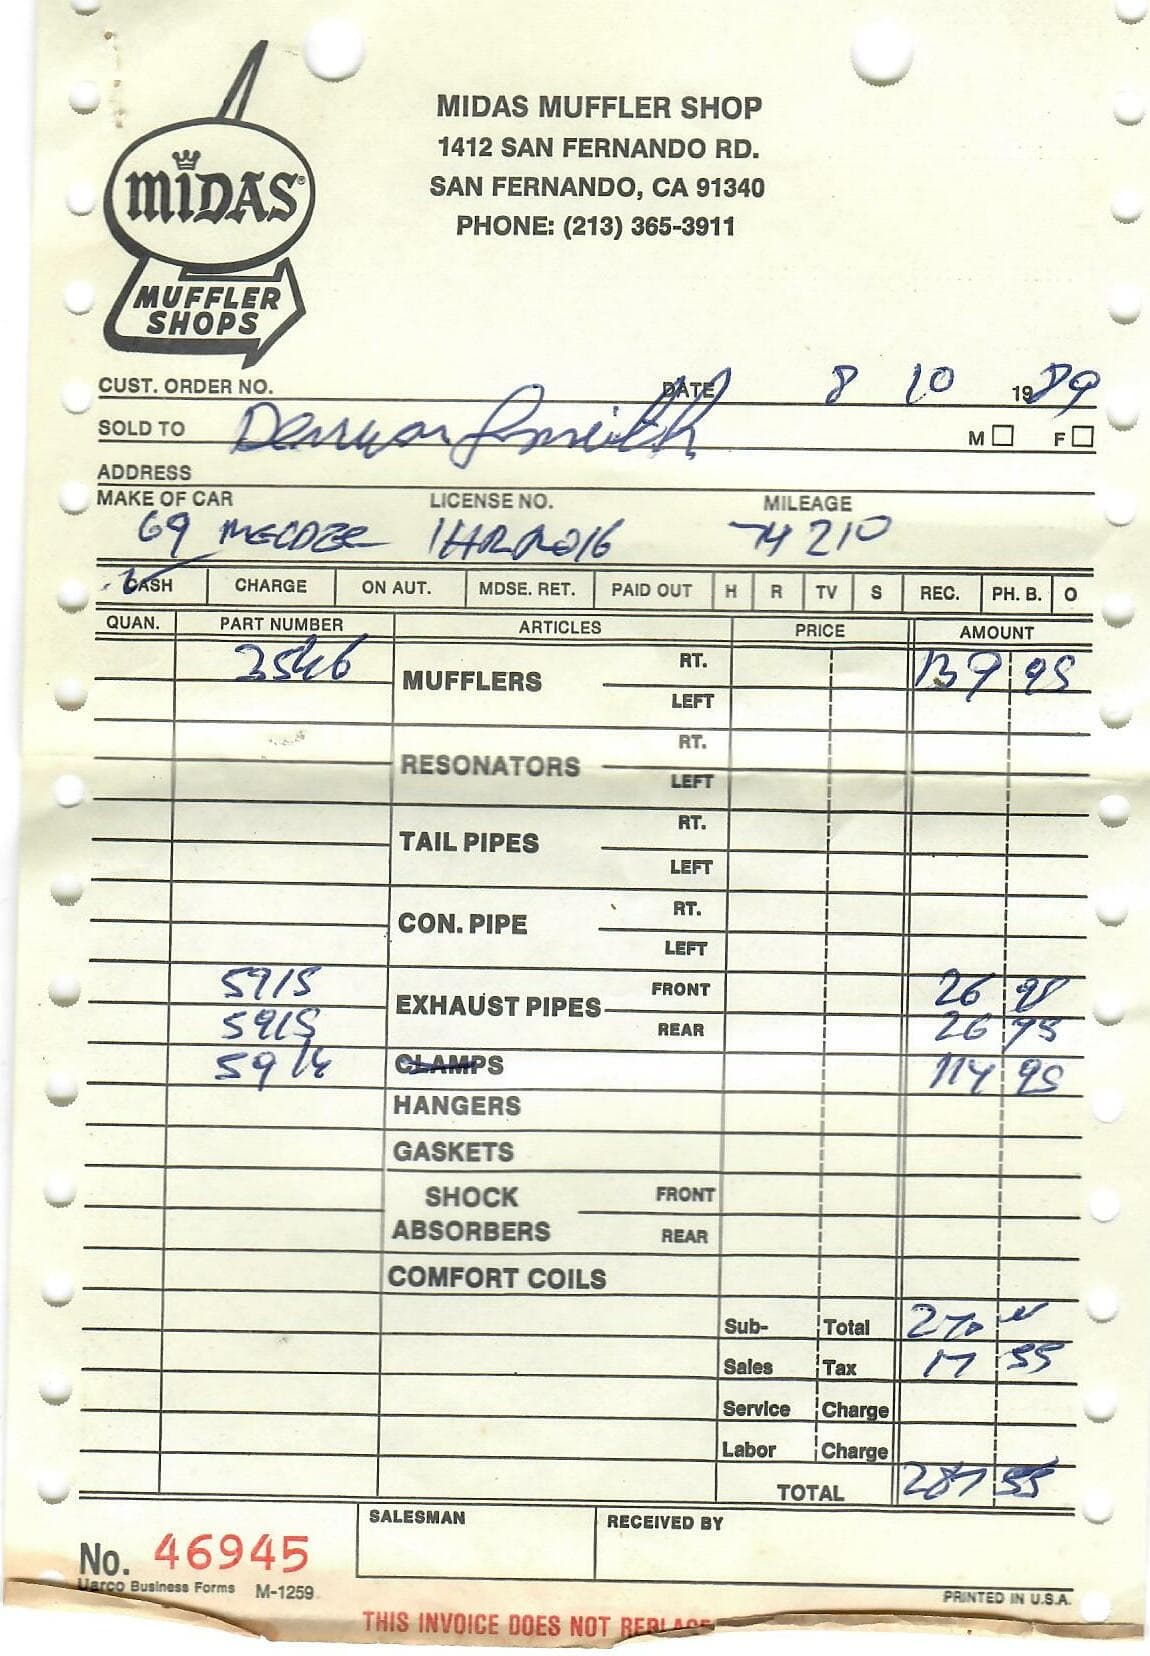 MIDAS®
MUFFLER
SHOPS
MIDAS MUFFLER SHOP
1412 SAN FERNANDO RD.
SAN FERNANDO, CA 91340
PHONE: (213) 365-3911
CUST. ORDER NO. DATE 8 10 1989
SOLD TO Smith M F
ADDRESS
MAKE OF CAR LICENSE NO. MILEAGE
69 74210
CASH CHARGE ON AUT. MDSE. RET. PAID OUT H R TV S REC. PH. B. O
QUAN. PART NUMBER ARTICLES PRICE AMOUNT
MUFFLERS RT. 139 95
LEFT
RESONATORS RT.
LEFT
TAIL PIPES RT.
LEFT
CON. PIPE RT.
LEFT
5915 EXHAUST PIPES FRONT 26
5915 REAR 26 95
CLAMPS 114 95
HANGERS
GASKETS
SHOCK ABSORBERS FRONT
REAR
COMFORT COILS
Sub- Total 270
Sales Tax 17 55
Service Charge
Labor Charge
TOTAL 287 55
No. 46945 SALESMAN RECEIVED BY
Uarco Business Forms M-1259 PRINTED IN U.S.A.
THIS INVOICE DOES NOT REPLACE